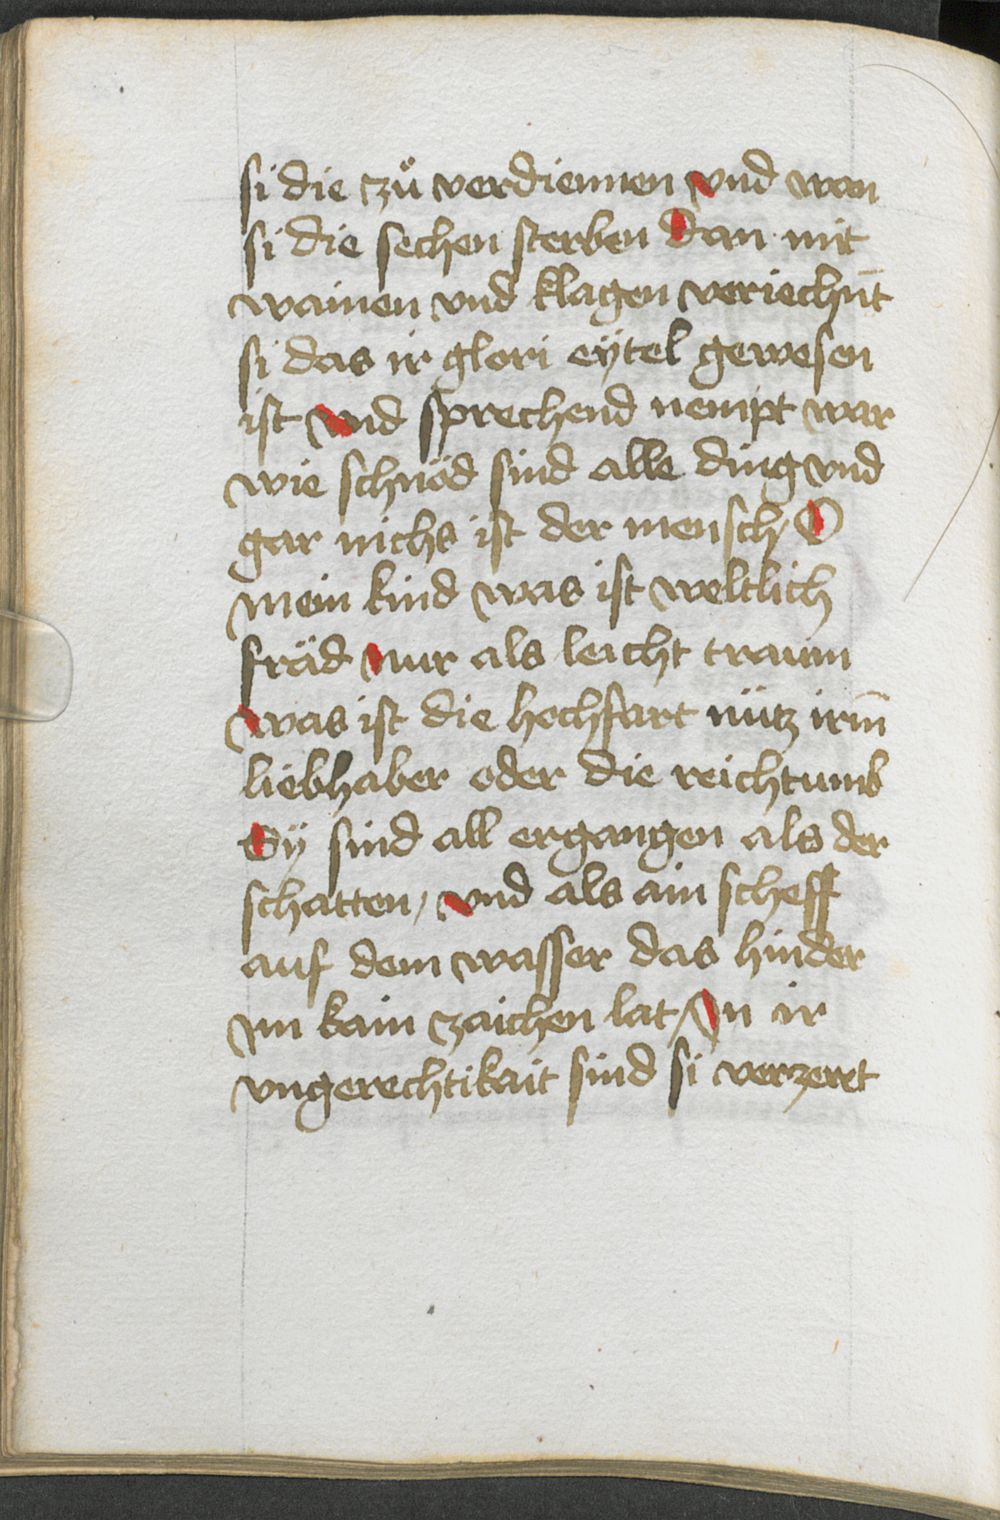 si die zů verdiennen vnd wan
si die sechen sterben Dan mit
wainen vnd klagen veriechnt̄
si das ir glori eÿtel gewesen
ist vnd sprechend nempt war
wie schnöd sind alle ding vnd
gar nichs ist der mensch / O
mein kind was ist weltlich
fräd nur als leicht traum
was ist die hochfart nütz irm̄
liebhaber oder die reichtumb
Sÿ sind all ergangen als der
schatten / vnd als ain scheff
auf dem wasser das hinder
im kain zaichen lat / In ir
vngerechtikait sind si verzeret